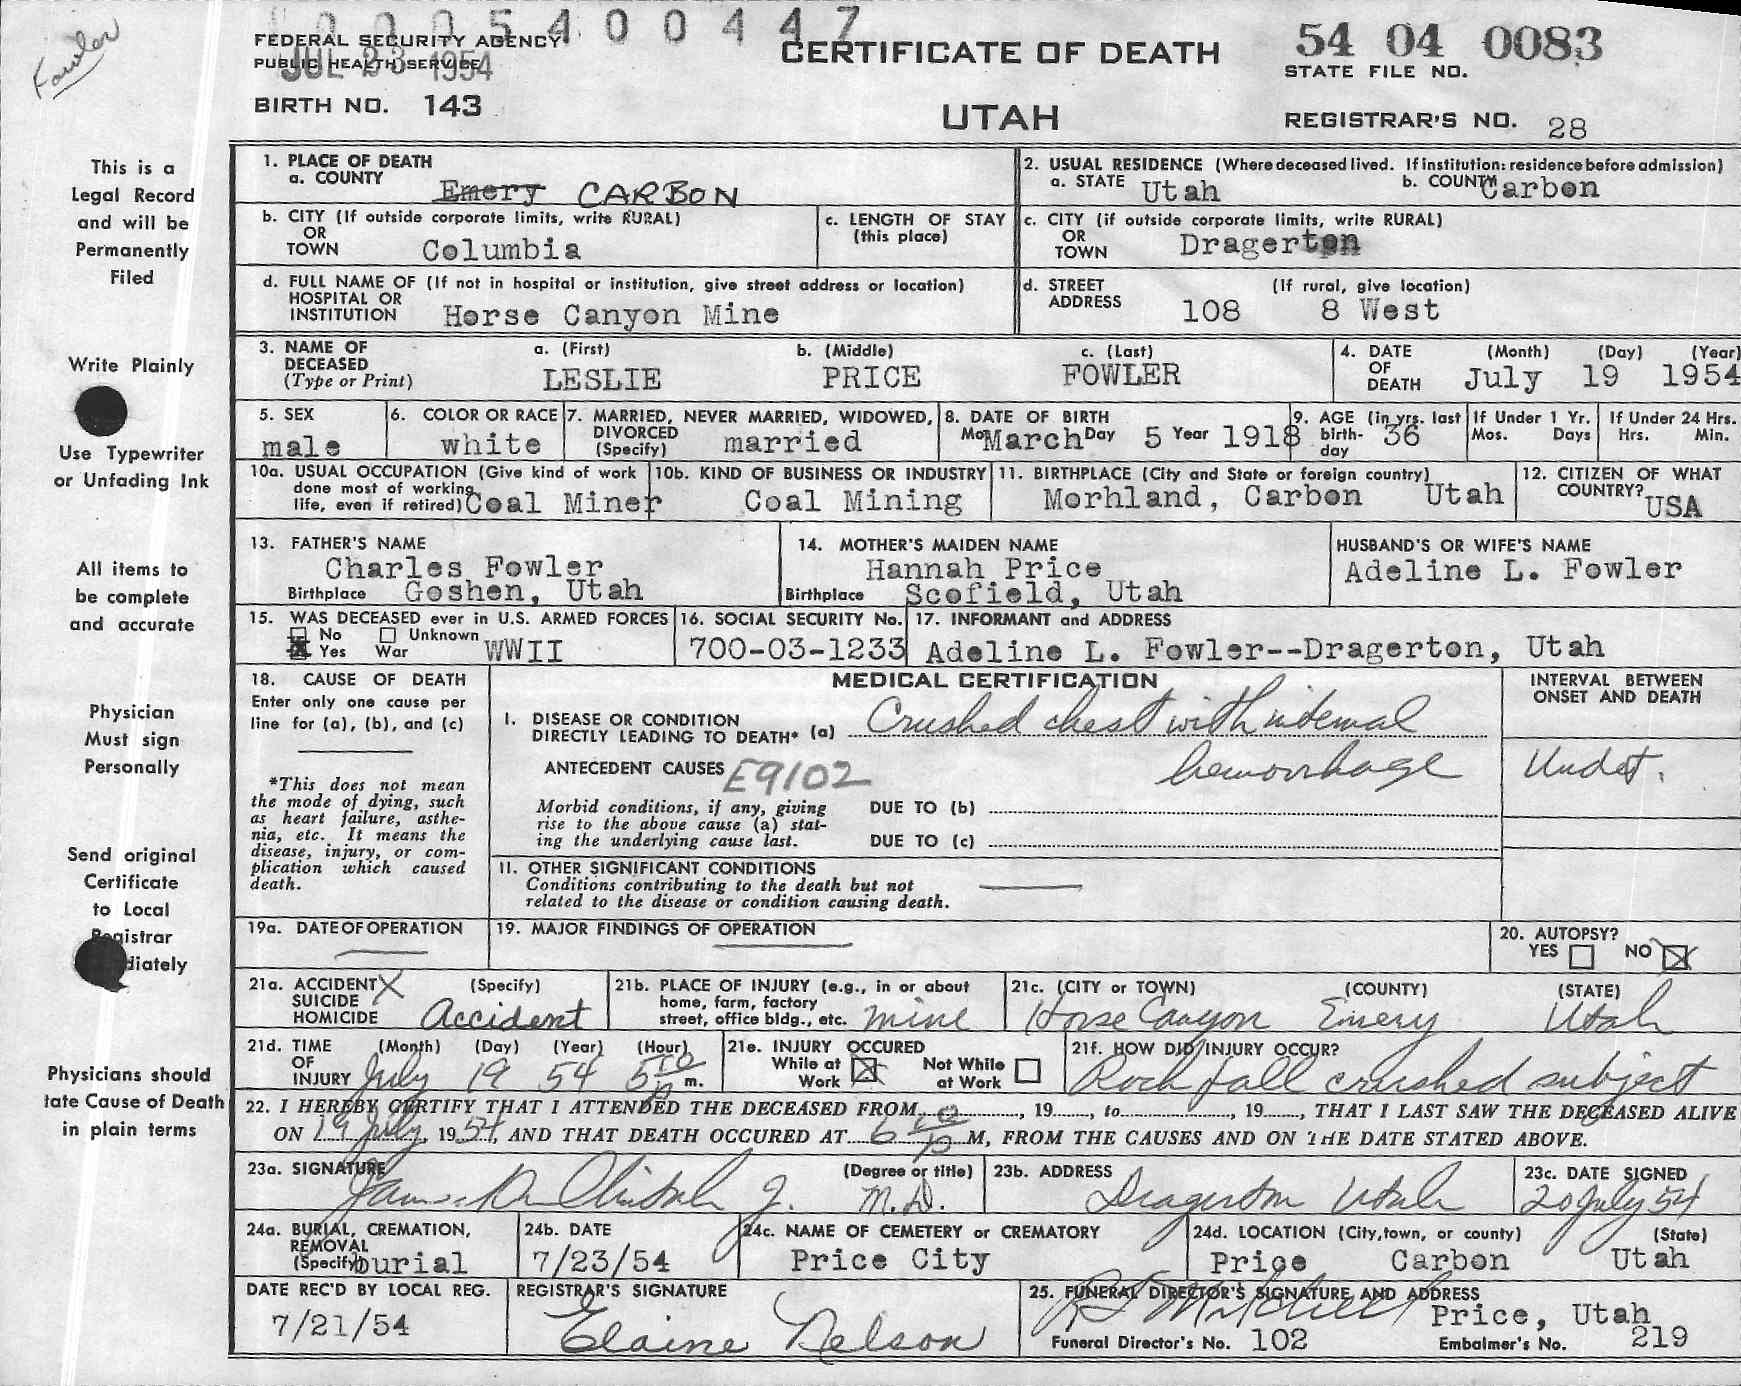 Fowler
0005400447
FEDERAL SECURITY AGENCY
PUBLIC HEALTH SERVICE
JUL 23 1954
BIRTH NO. 143
CERTIFICATE OF DEATH
UTAH
54 04 0083
STATE FILE NO.
REGISTRAR'S NO. 28
This is a
Legal Record
and will be
Permanently
Filed
Write Plainly
Use Typewriter
or Unfading Ink
All items to
be complete
and accurate
Physician
Must sign
Personally
Send original
Certificate
to Local
Registrar
diately
Physicians should
tate Cause of Death
in plain terms
1. PLACE OF DEATH
a. COUNTY Emery CARBON
2. USUAL RESIDENCE (Where deceased lived. If institution: residence before admission)
a. STATE Utah b. COUNTY Carbon
b. CITY (If outside corporate limits, write RURAL)
OR
TOWN Columbia
c. LENGTH OF STAY
(this place)
c. CITY (if outside corporate limits, write RURAL)
OR
TOWN Dragerton
d. FULL NAME OF (If not in hospital or institution, give street address or location)
HOSPITAL OR
INSTITUTION Horse Canyon Mine
d. STREET (If rural, give location)
ADDRESS 108 8 West
3. NAME OF
DECEASED
(Type or Print)
a. (First) b. (Middle) c. (Last)
LESLIE PRICE FOWLER
4. DATE (Month) (Day) (Year)
OF
DEATH July 19 1954
5. SEX
male
6. COLOR OR RACE
white
7. MARRIED, NEVER MARRIED, WIDOWED,
DIVORCED
(Specify) married
8. DATE OF BIRTH
Mo March Day 5 Year 1918
9. AGE (in yrs. last
birth-
day 36
If Under 1 Yr.
Mos. Days
If Under 24 Hrs.
Hrs. Min.
10a. USUAL OCCUPATION (Give kind of work
done most of working
life, even if retired) Coal Miner
10b. KIND OF BUSINESS OR INDUSTRY
Coal Mining
11. BIRTHPLACE (City and State or foreign country)
Morhland, Carbon Utah
12. CITIZEN OF WHAT
COUNTRY? USA
13. FATHER'S NAME
Charles Fowler
Birthplace Goshen, Utah
14. MOTHER'S MAIDEN NAME
Hannah Price
Birthplace Scofield, Utah
HUSBAND'S OR WIFE'S NAME
Adeline L. Fowler
15. WAS DECEASED ever in U.S. ARMED FORCES
No Unknown
Yes War WWII
16. SOCIAL SECURITY No.
700-03-1233
17. INFORMANT and ADDRESS
Adeline L. Fowler--Dragerton, Utah
18. CAUSE OF DEATH
Enter only one cause per
line for (a), (b), and (c)
*This does not mean
the mode of dying, such
as heart failure, asthe-
nia, etc. It means the
disease, injury, or com-
plication which caused
death.
MEDICAL CERTIFICATION
INTERVAL BETWEEN
ONSET AND DEATH
I. DISEASE OR CONDITION
DIRECTLY LEADING TO DEATH* (a) Crushed chest with internal
hemorrhage Undet.
ANTECEDENT CAUSES E9102
Morbid conditions, if any, giving
rise to the above cause (a) stat-
ing the underlying cause last.
DUE TO (b)
DUE TO (c)
II. OTHER SIGNIFICANT CONDITIONS
Conditions contributing to the death but not
related to the disease or condition causing death.
19a. DATE OF OPERATION
19. MAJOR FINDINGS OF OPERATION
20. AUTOPSY?
YES NO X
21a. ACCIDENT X
SUICIDE
HOMICIDE
(Specify)
Accident
21b. PLACE OF INJURY (e.g., in or about
home, farm, factory
street, office bldg., etc. mine
21c. (CITY or TOWN) (COUNTY) (STATE)
Horse Canyon Emery Utah
21d. TIME (Month) (Day) (Year) (Hour)
OF
INJURY July 19 54 5 50 p m.
21e. INJURY OCCURED
While at Work X Not While at Work
21f. HOW DID INJURY OCCUR?
Rock fall crushed subject
22. I HEREBY CERTIFY THAT I ATTENDED THE DECEASED FROM , 19 , to , 19 , THAT I LAST SAW THE DECEASED ALIVE
ON 19 July, 1954, AND THAT DEATH OCCURED AT 6 p M, FROM THE CAUSES AND ON THE DATE STATED ABOVE.
23a. SIGNATURE (Degree or title)
M.D.
23b. ADDRESS
Dragerton Utah
23c. DATE SIGNED
20 July 54
24a. BURIAL, CREMATION,
REMOVAL
(Specify) burial
24b. DATE
7/23/54
24c. NAME OF CEMETERY or CREMATORY
Price City
24d. LOCATION (City, town, or county) (State)
Price Carbon Utah
DATE REC'D BY LOCAL REG.
7/21/54
REGISTRAR'S SIGNATURE
Elaine Nelson
25. FUNERAL DIRECTOR'S SIGNATURE AND ADDRESS
Mitchell Price, Utah
Funeral Director's No. 102 Embalmer's No. 219